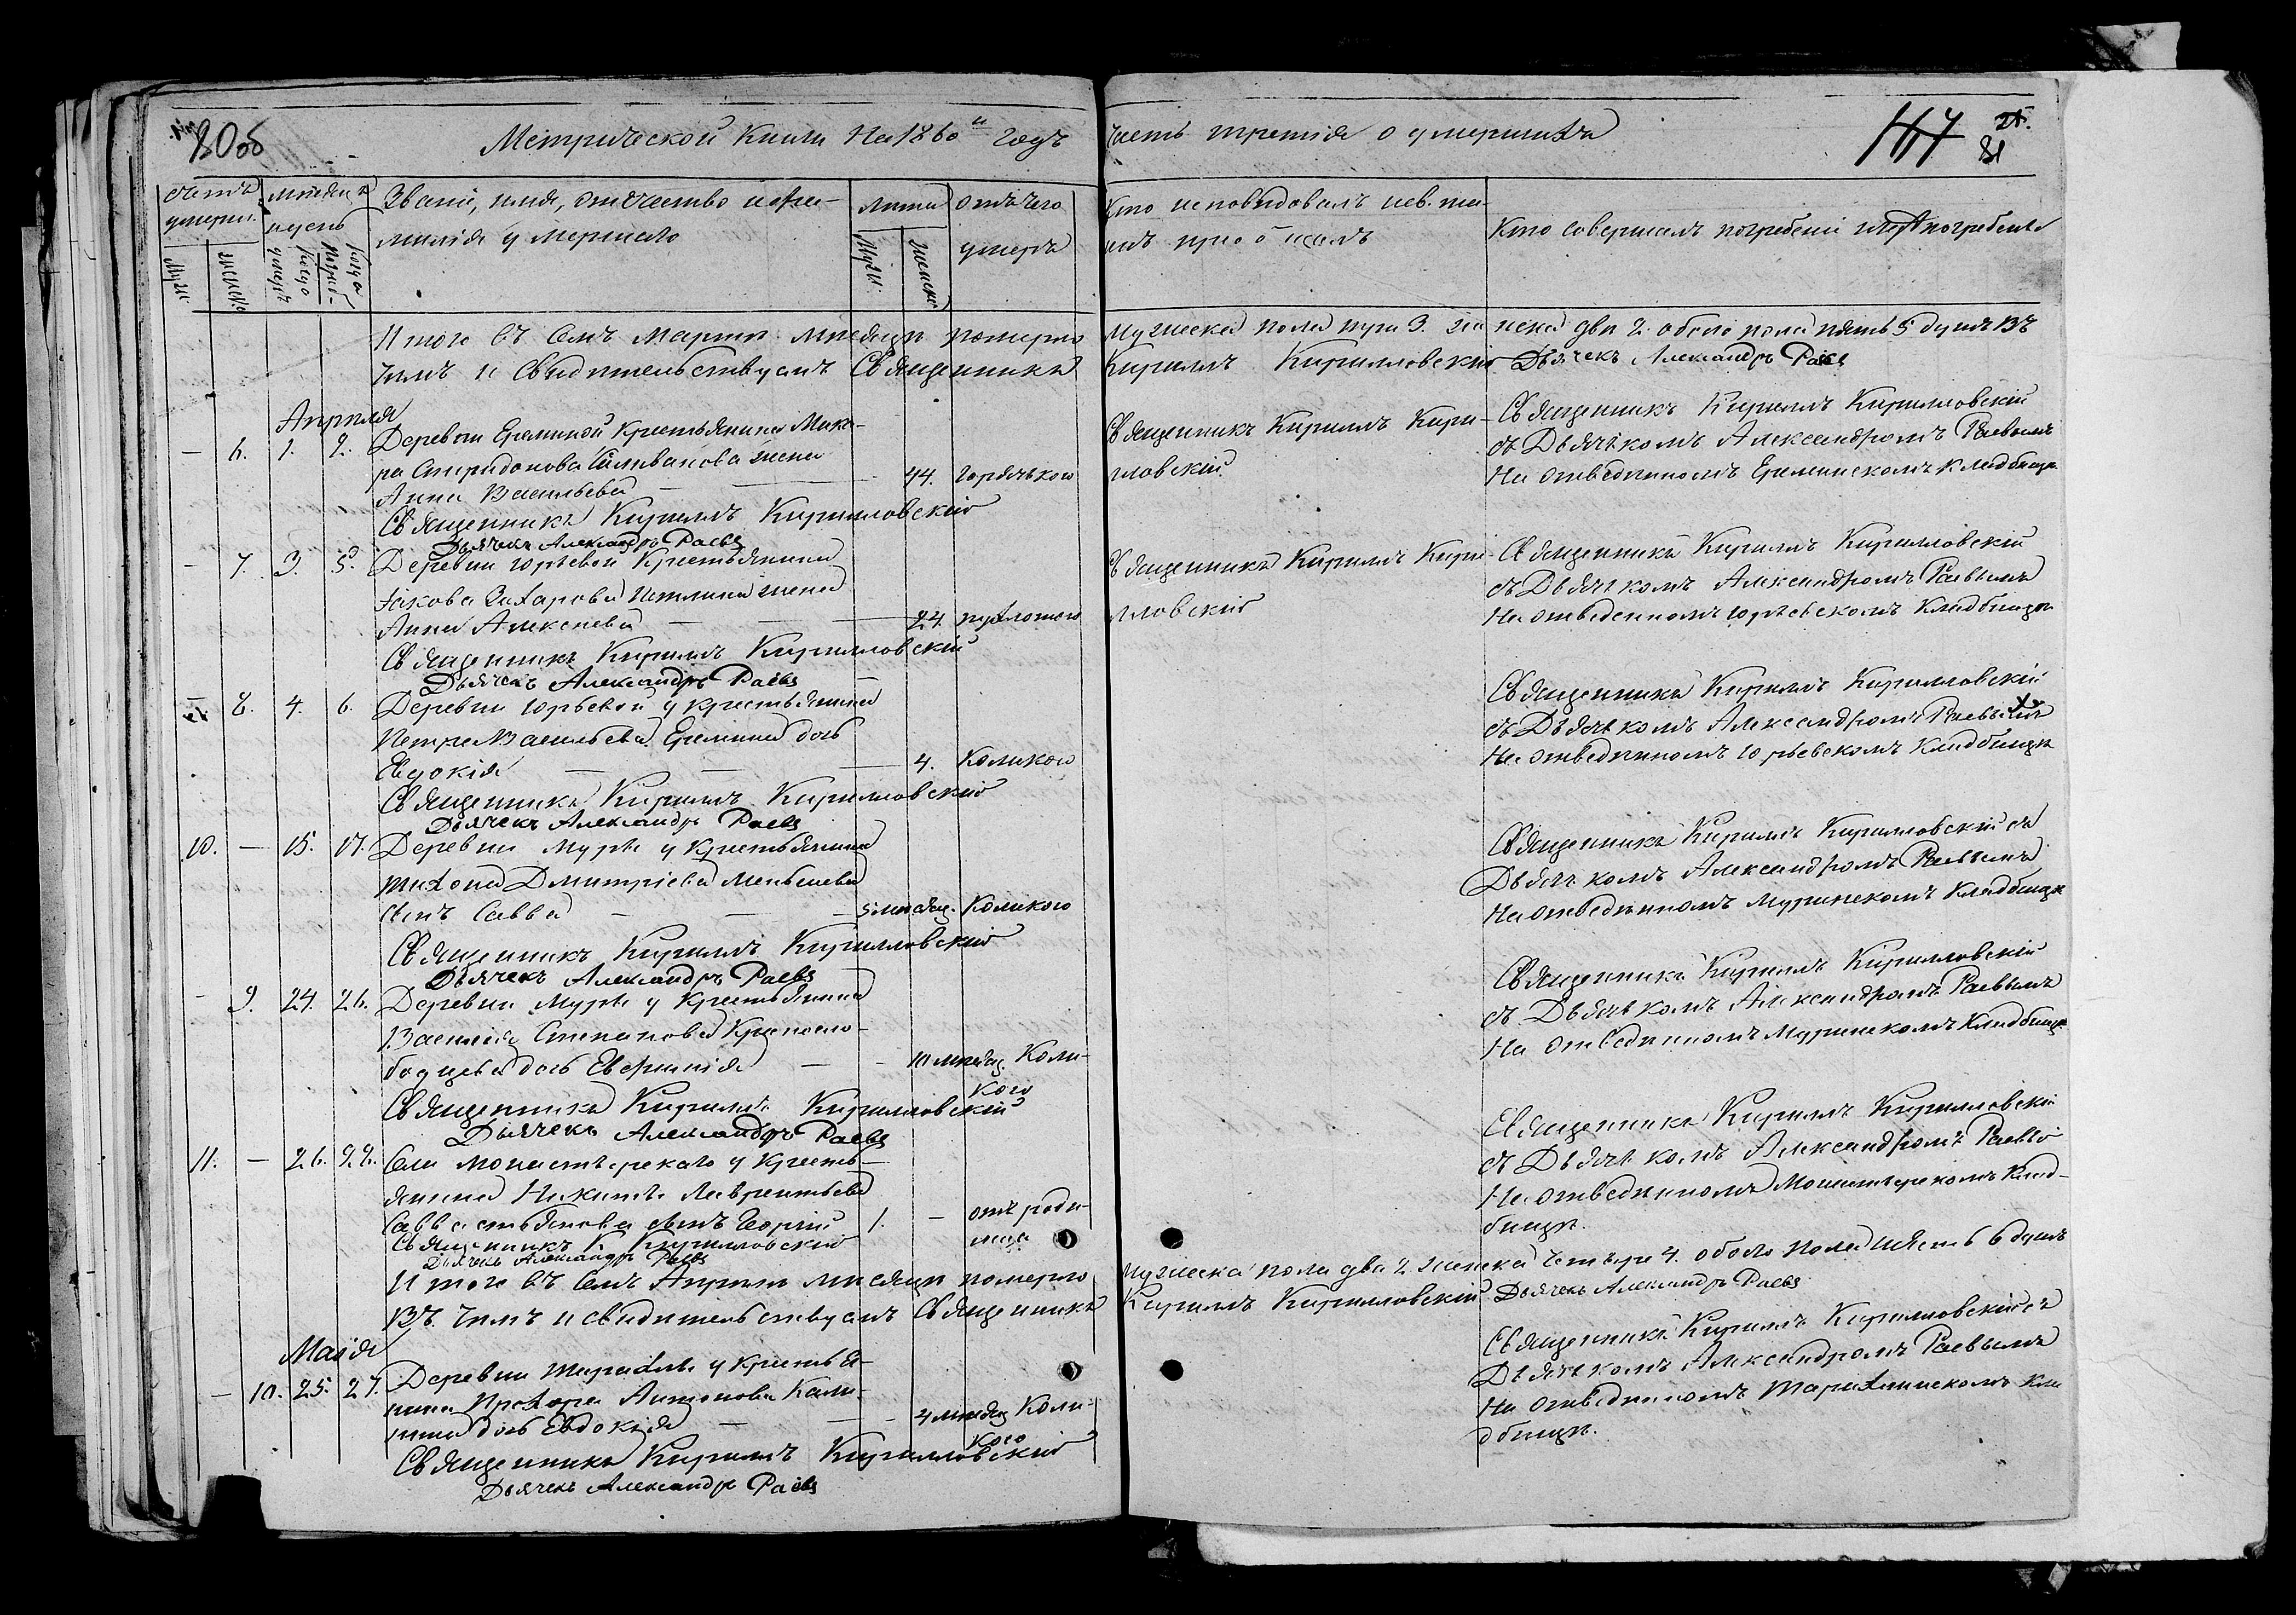 80об
Метрической Книги На 1860й годъ
часть третія о умершихъ
счетъ умерш.
мѣсяцъ и день
Званіе, имя, отчество и фа-
милія умершаго
лѣта
отъ чего
умеръ
Муж.
женск.
Когда умеръ
Когда погреб.
Муж.
женск.
Кто исповѣдовалъ и св. та-
инъ пріобщалъ
Кто совершалъ погребеніе и гдѣ погребены
Итого въ семъ Мартѣ мѣсяцѣ померло
чемъ и Свидѣтельствуемъ Священникъ
мужеска пола три 3. женска две 2. обоего пола пять 5 душъ Въ
Кириллъ Кирилловскій Дьячекъ Александръ Раевъ
Апрѣля
— 6. 1. 2. Деревни Ереминой Крестьянина Мака-
ра Спиридонова Селиванова жена
Анна Васильева — — 44. горячкою
Священникъ Кириллъ Кирилловскій
Дьячекъ Александръ Раевъ
Священникъ Кириллъ Кири-
лловскій
Священникъ Кириллъ Кирилловскій
съ Дьячкомъ Александромъ Раевымъ
На отведенномъ Ереминскомъ Кладбищѣ
— 7. 3. 5. Деревни Юрьевой Крестьянина
Іакова Захарова жена
Анна Алексѣева — — 24.
Священникъ Кириллъ Кирилловскій
Дьячекъ Александръ Раевъ
Священникъ Кириллъ Кири-
лловскій
Священникъ Кириллъ Кирилловскій
съ Дьячкомъ Александромъ Раевымъ
На отведенномъ Юрьевскомъ Кладбищѣ
— 8. 4. 6. Деревни Юрьевой у крестьянина
Петра Васильева Еремина дочь
Евдокія — — 4. Коликою
Священникъ Кириллъ Кирилловскій
Дьячекъ Александръ Раевъ
Священникъ Кириллъ Кирилловскій
съ Дьячкомъ Александромъ Раевымъ
На отведенномъ Юрьевскомъ Кладбищѣ
10. — 15. 17. Деревни Муры у Крестьянина
Тихона Дмитріева Меньшева
сынъ Савва — — 5 мѣсяц. Коликою
Священникъ Кириллъ Кирилловскій
Дьячекъ Александръ Раевъ
Священникъ Кириллъ Кирилловскій съ
Дьячкомъ Александромъ Раевымъ
На отведенномъ Муринскомъ Кладбищѣ
— 9. 24. 26. Деревни Муры у Крестьянина
Василія Степанова Красносло-
бодцева дочь — — 10 мѣсяц. Коли-
кою
Священникъ Кириллъ Кирилловскій
Дьячекъ Александръ Раевъ
Священникъ Кириллъ Кирилловскій
съ Дьячкомъ Александромъ Раевымъ
На отведенномъ Муринскомъ Кладбищѣ
11. — 26. Села Монастырскаго у Кресть-
янина Никиты Лаврентьева
Саввастьянова сынъ Георгій 1. — отъ роди-
мца
Священникъ К Кирилловскій
Дьячекъ Александръ Раевъ
Священникъ Кириллъ Кирилловскій
съ Дьячкомъ Александромъ Раевы
На отведенномъ Монастырскомъ Клад-
бищѣ.
Итого въ семъ Апрѣлѣ мѣсяцѣ померло
Въ чемъ и свидѣтельствуемъ Священникъ
мужеска пола два 2 женска четыре 4. обоего пола шесть 6 душъ
Кириллъ Кирилловскій Дьячекъ Александръ Раевъ
Маія
— 10. 25. 27. Деревни у крестья-
нина Прохора Антонова Кали-
нина дочь Евдокія — — 4 мѣсяц Коли-
кою
Священникъ Кириллъ Кирилловскій
Дьячекъ Александръ Раевъ
Священникъ Кириллъ Кирилловскій съ
Дьячкомъ Александромъ Раевымъ
На отведенномъ Кла
дбищѣ.